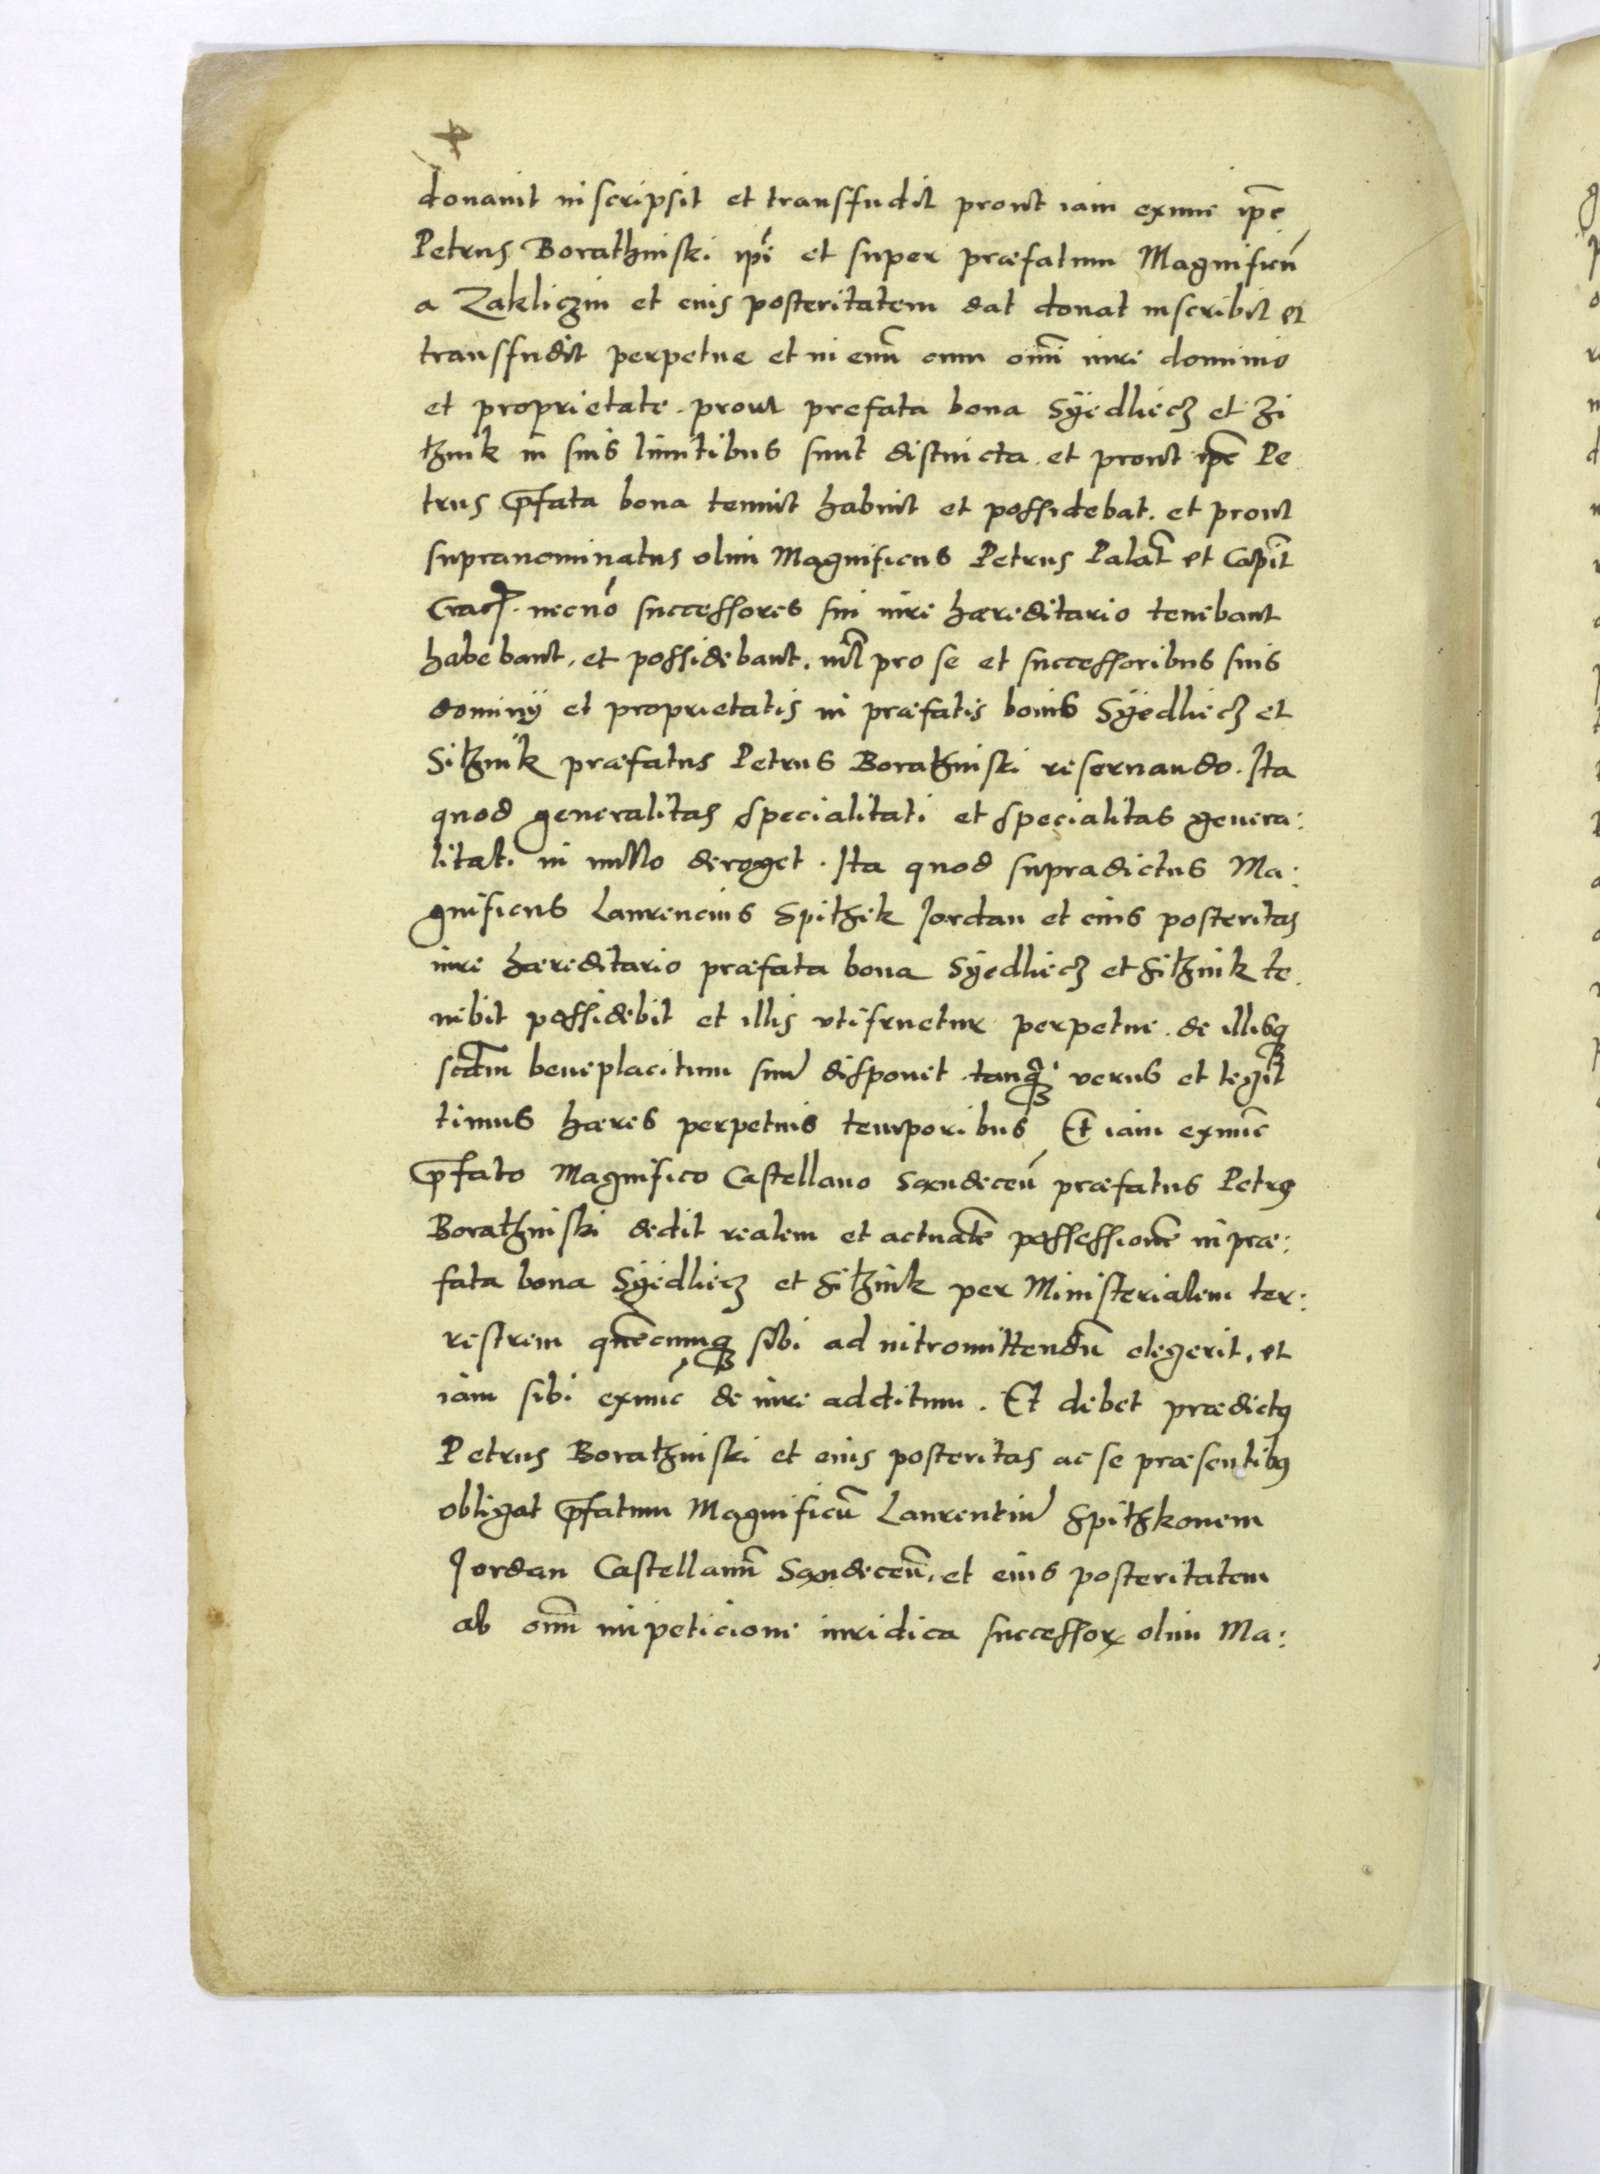 donavit inscripsit et transfudit prout iam exnunc ip̄e
Petrus Borathinski ip̄i et super præfatum Magnificū
a Zakliczin et eius posteritatem dat donat inscribit et
transfudit perpetue et in eum̄ cum om̄i iure dominio
et proprietate. prout prefata bona Syedliecz et Zi
thnik in suis limitibus sunt distincta. et prout ip̄e Pe
trus p̄fata bona tenuit habuit et possidebat. et prout
supranominatus olim Magnificus Petrus Palat̄ et Capit̄
Crac̄. necnō successores sui iure hæreditario tenebant
habebant, et possidebant. nīl pro se et successoribus suis
dominÿ et proprietatis in præfatis bonis Syedliecz et
Sithnik præfatus Petrus Borathinski reseruando. Ita
quod generalitas specialitati et specialitas genera:
litati in nullo deroget. Ita quod supradictus Ma:
gnificus Laurencius Spithek Jordan et eius posteritas
iure hæreditario præfata bona Syedliecz et Sithnik te
nebit possidebit et illis vtifruetur perpetue. de illisq
scd̄m beneplacitum suū disponet. tanq̄ verus et legit
timus hæres perpetuis temporibus Et iam exnūc
p̄fato Magnifico Castellano Sandeceñ præfatus Petrꝰ
Borathinski dedit realem et actualē possessionē in præ:
fata bona Syedliecz et Sithnik per Ministerialem ter:
restrem quēcumq sibi ad intromittendū elegerit, et
iam sibi exnūc de iure additum. Et debet prædictꝰ
Petrus Borathinski et eius posteritas ac se præsentibꝰ
obligat p̄fatum Magnificū Laurentiū Spithkonem
Jordan Castellanū Sandeceñ, et eius posteritatem
ab om̄i impeticione iuridica successoꝝ olim Ma: